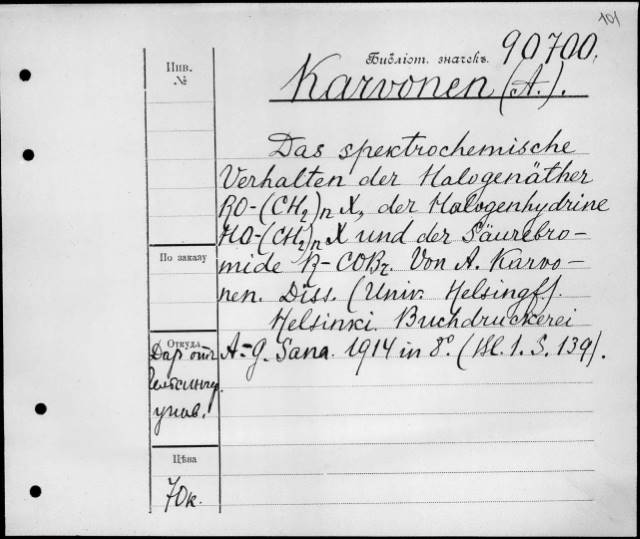 101
Библіот. значекъ. 90700.
Инв.
№
Karvonen (A.).
Das spektrochemische
Verhalten der Halogenäther
RO-(CH₂)n X, der Halogenhydrine
HO-(CH₂)n X und der Säurebro-
По заказу
mide R-COBr. Von A. Karvo-
nen. Diss. (Univ. Helsingf.).
Helsinki. Buchdruckerei
Откуда
A.-g. Sana. 1914 in 8°. (Bl. 1. S. 139).
Даръ отъ
Гельсингф.
унив.
Цѣна
70к.